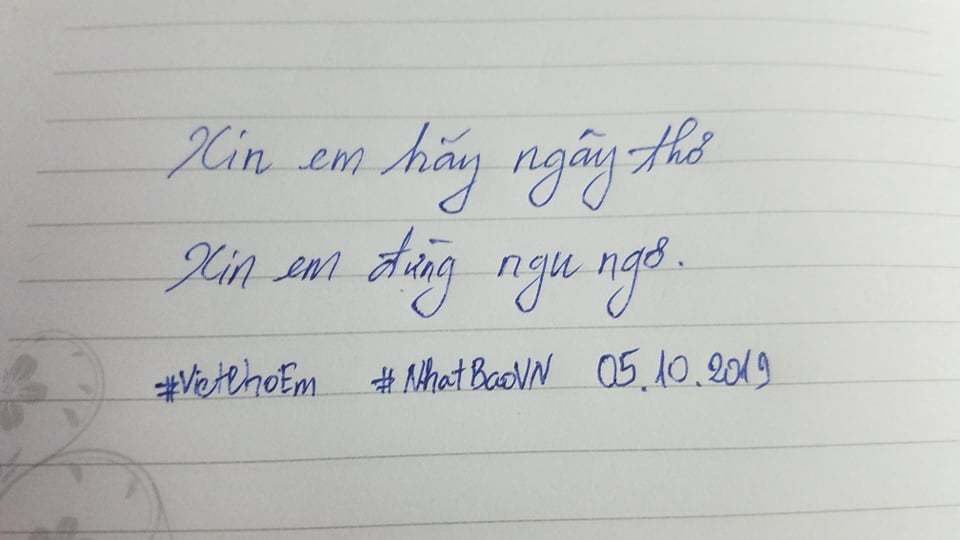 Xin em hãy ngây thơ
Xin em đừng ngu ngơ.
#VietchoEm #NhatBaoVN 05.10.2019